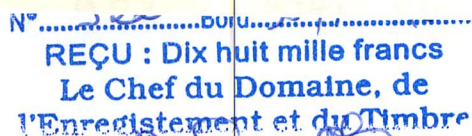 N°
REÇU : Dix huit mille francs
Le Chef du Domaine, de
l'Enregistement et du Timbre